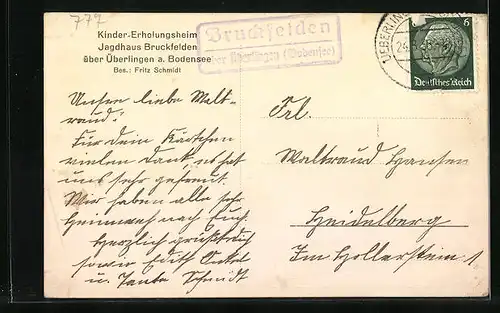 777
Kinder-Erholungsheim
Jagdhaus Bruckfelden
über Überlingen a. Bodensee
Bes.: Fritz Schmidt
Bruckfelden
über Überlingen (Bodensee)
UEBERLINGEN
6
Deutsches Reich
Unsere liebe Walt-
raud!
Für Dein Kärtchen
vielen Dank, es hat
uns sehr gefreut.
Wir haben alle sehr
Heimweh nach Euch.
Herzlich grüßt Dich
sowie Edith Onkel
u. Tante Schmidt
Frl.
Waltraud Hansen
Heidelberg
Im Hollerstein 1